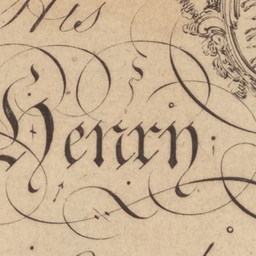 His
Henry